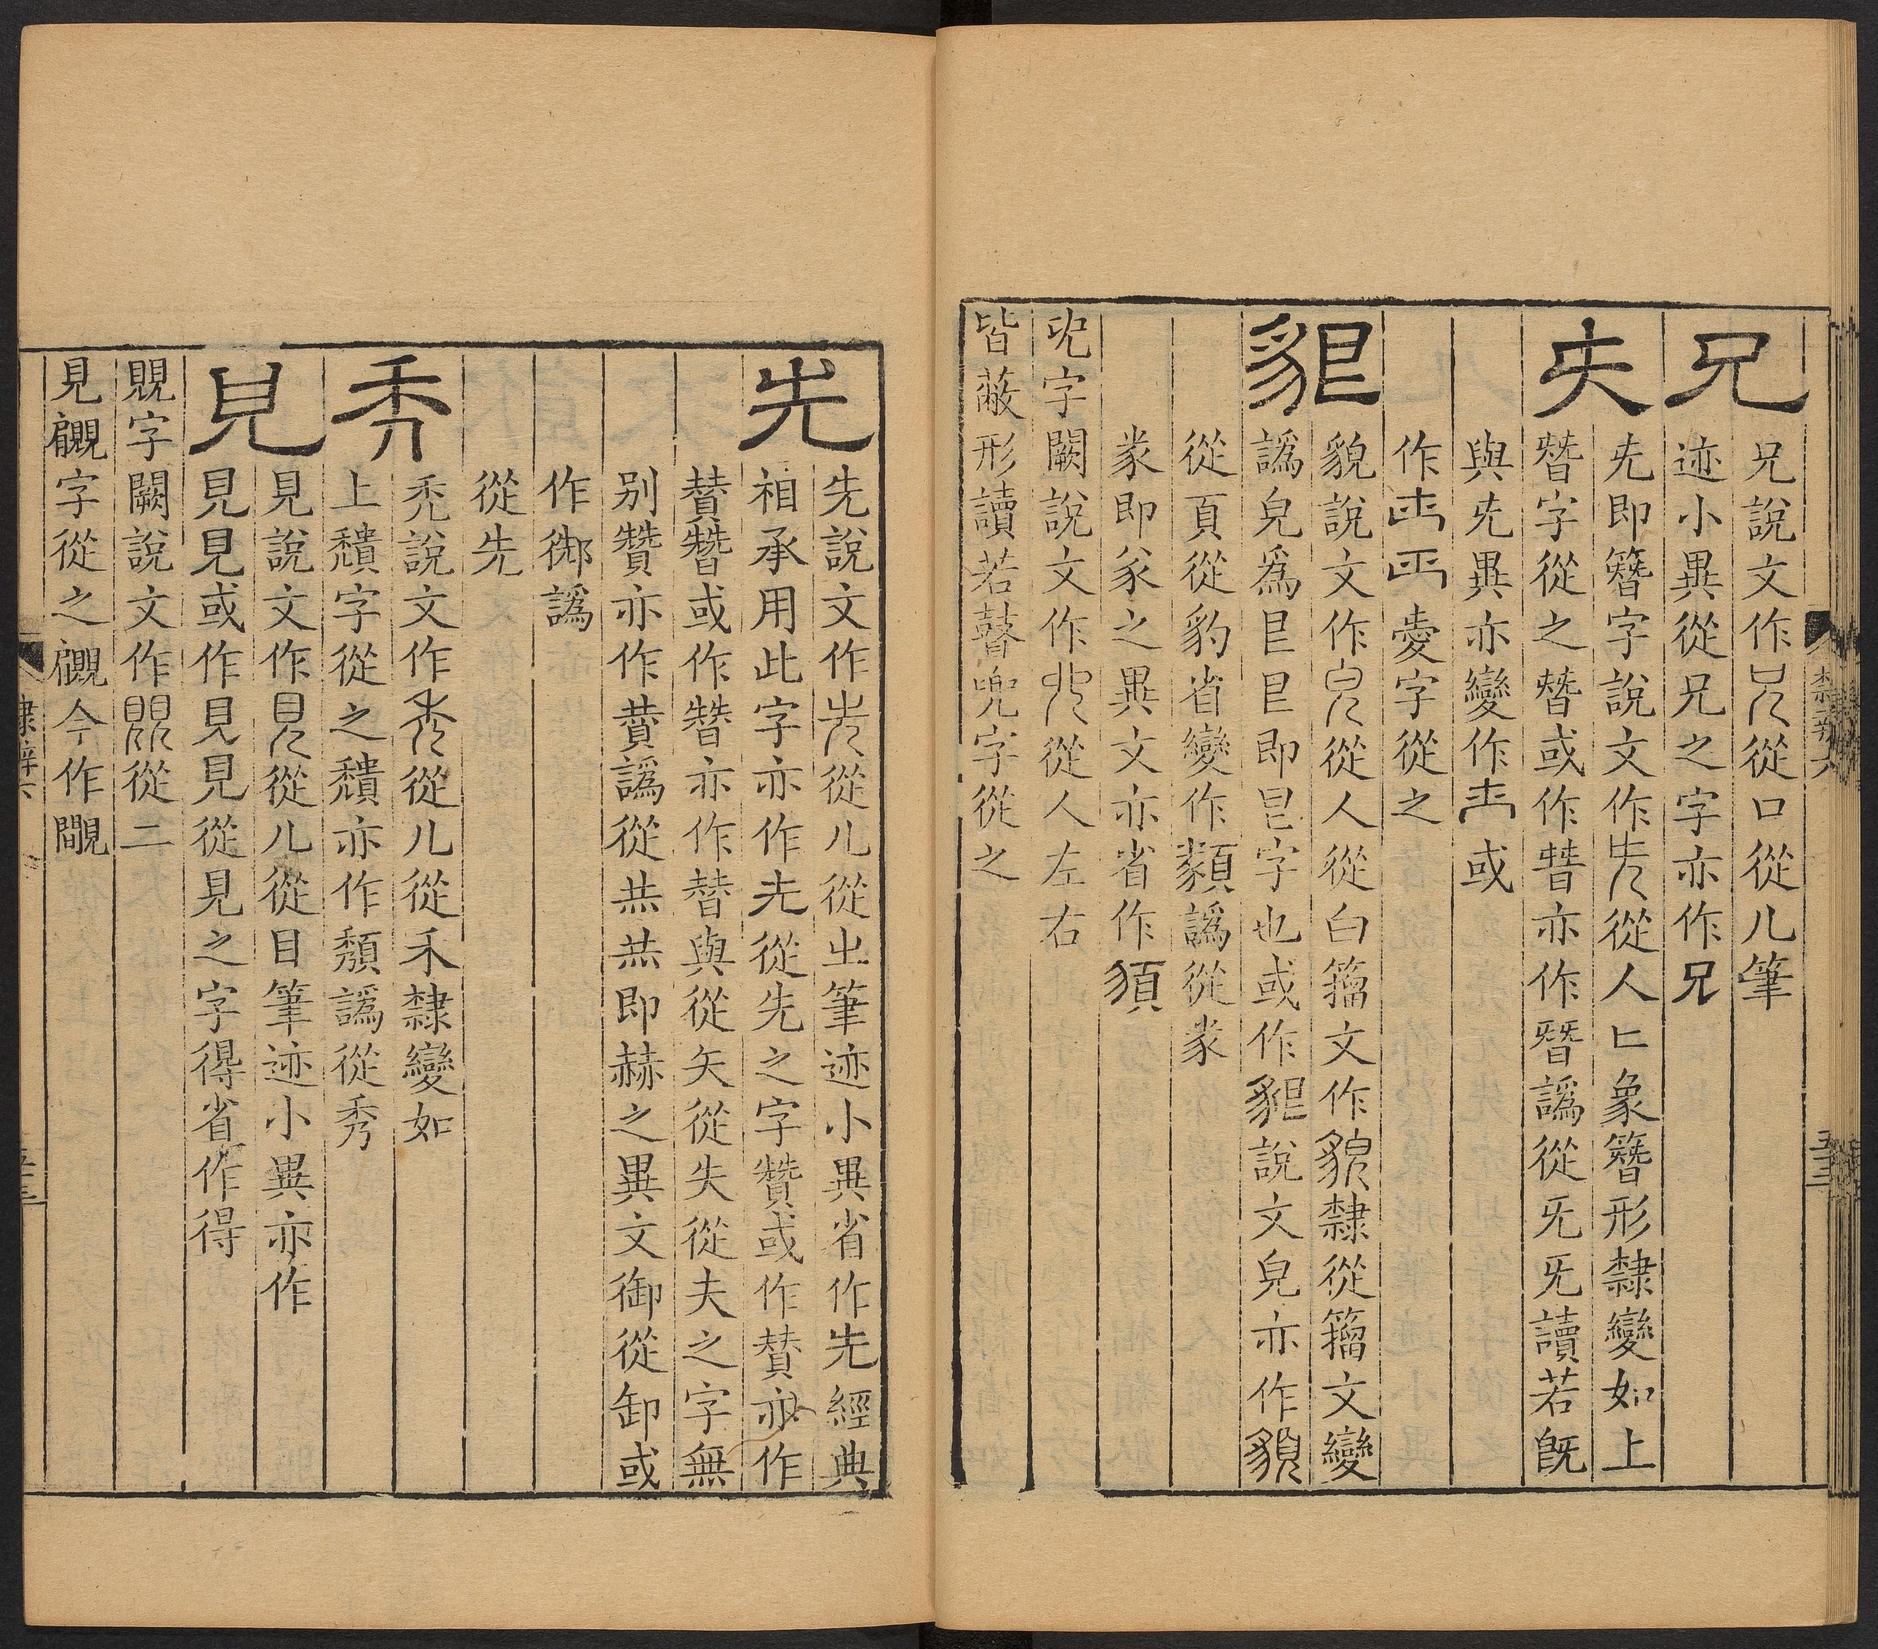 兄
兄說文作從口從儿筆
迹小異從兄之字亦作兄
兂即簪字說文作從人匕象簪形隸變如上
朁字從之朁或作朁亦作暜譌從旡旡讀若旣
與旡異亦變作或
作㤅字從之
貌說文作從人從白籒文作貌隸從籒文變
譌皃爲㠯㠯即㠯字也或作說文皃亦作䫉
從頁從豹省變作譌從𧰲
𧰲即豕之異文亦省作
𠑹字闕說文作從人左右
皆蔽形讀若瞽兜字從之
先
先說文作從儿從㞢筆迹小異省作先經典
相承用此字亦作先從先之字贊或作賛亦作
賛朁或作朁亦作替與從矢從失從夫之字無
別贊亦作譌從𤆍𤆍即赫之異文御從卸或
作譌
從先
秃
禿說文作從儿從禾隸變如
上穨字從之穨亦作頹譌從秀
見
見說文作從儿從目筆迹小異亦作
見見或作見見從見之字得省作得
覞字闕說文作從二
見字從之今作
隸辨六